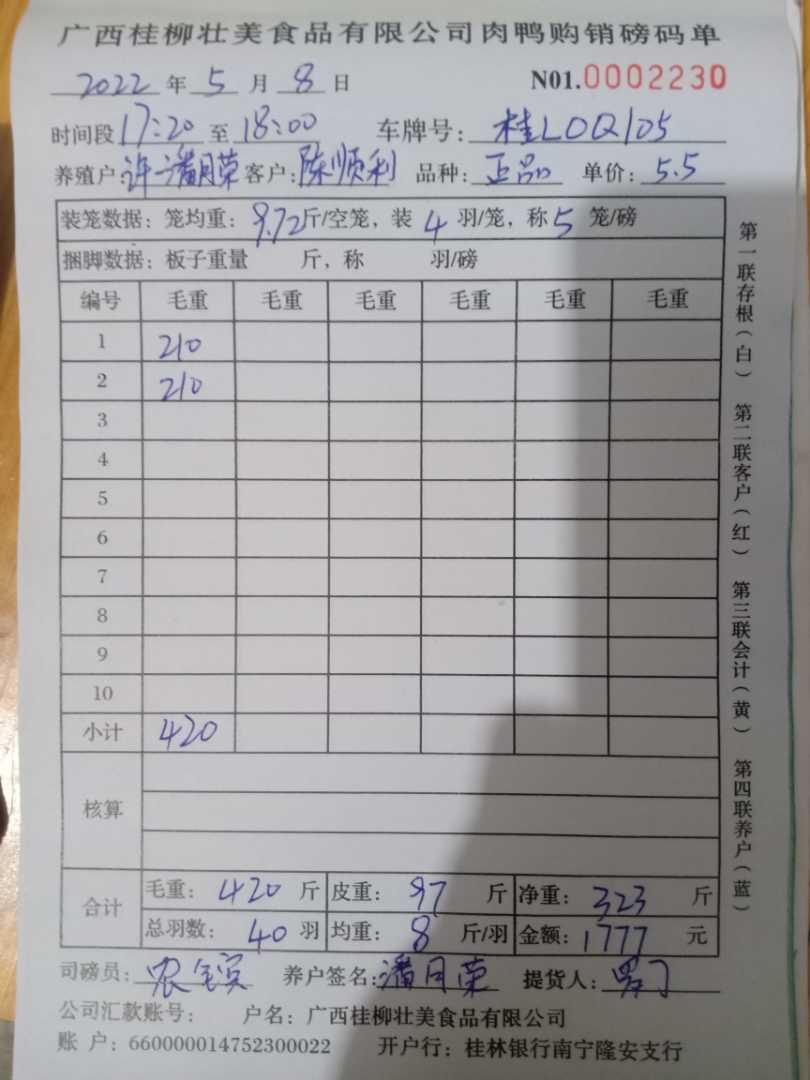 广西桂柳壮美食品有限公司肉鸭购销磅码单
2022 年 5 月 8 日 N01.0002230
时间段 17:20 至 18:00 车牌号: 桂L0Q105
养殖户: 许 潘月荣 客户: 陈顺利 品种: 正品 单价: 5.5
装笼数据: 笼均重: 9.72斤/空笼, 装 4 羽/笼, 称 5 笼/磅
捆脚数据: 板子重量 斤, 称 羽/磅
编号 毛重 毛重 毛重 毛重 毛重 毛重
1 210
2 210
3
4
5
6
7
8
9
10
小计 420
核算
合计 毛重: 420 斤 皮重: 97 斤 净重: 323 斤
总羽数: 40 羽 均重: 8 斤/羽 金额: 1777 元
司磅员: 农 养户签名: 潘月荣 提货人:
公司汇款账号: 户名: 广西桂柳壮美食品有限公司
账 户: 660000014752300022 开户行: 桂林银行南宁隆安支行
第一联存根(白) 第二联客户(红) 第三联会计(黄) 第四联养户(蓝)